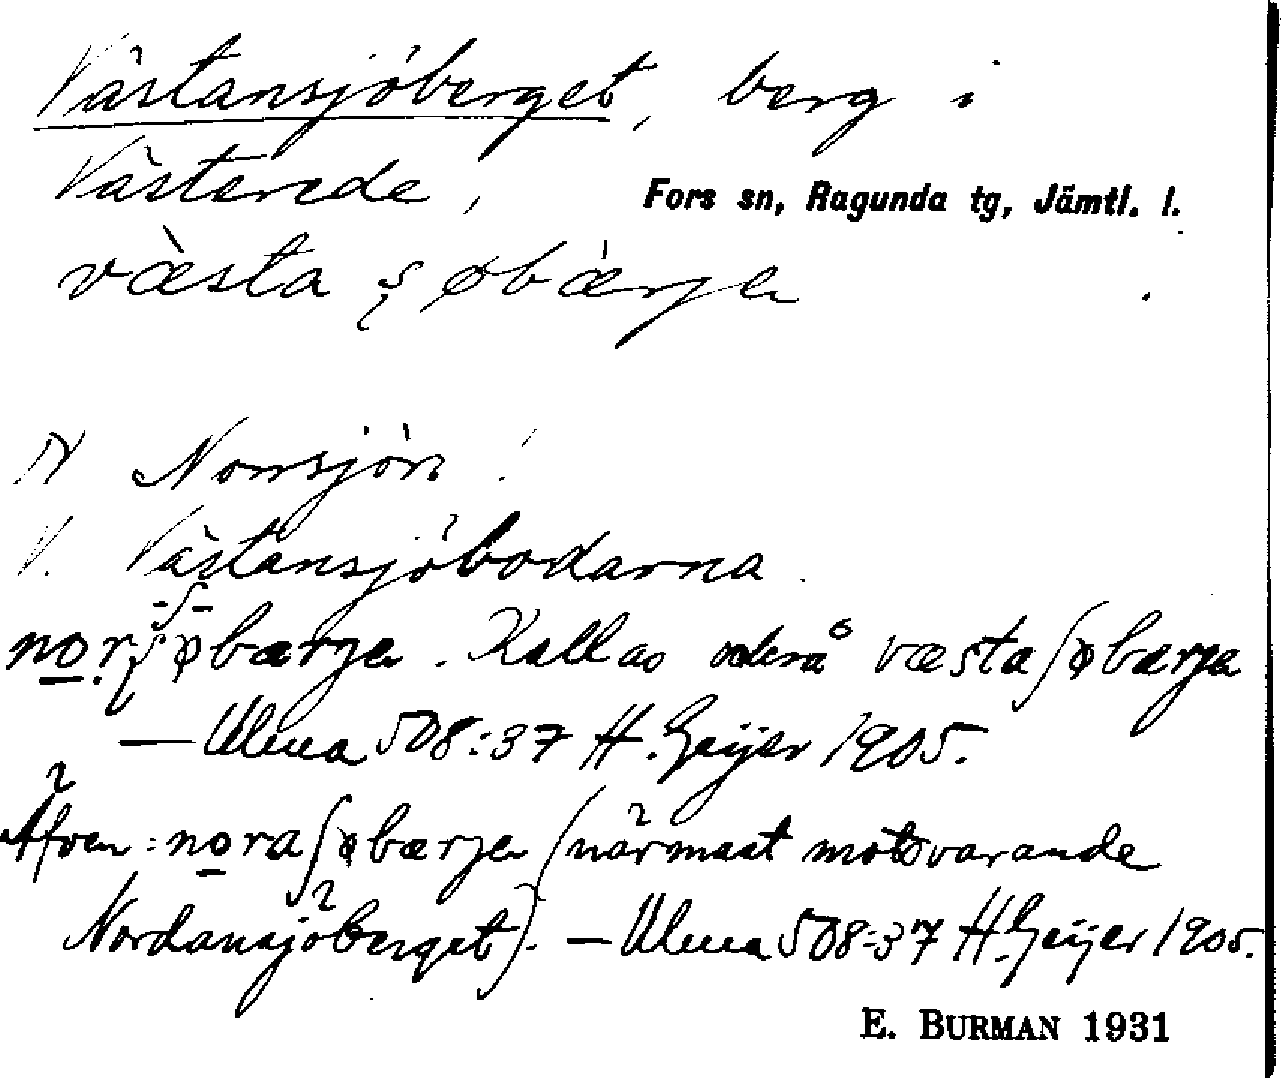 Västansjöberget, berg i
Västerede, Fors sn, Ragunda tg, Jämtl. l.
væ̀sta ʂøbæ̀rjen
N Norrsjön
V. Västansjöbodarna.
-ʃ-
no̲rʂøbærjen. Kallas væstaʃøbærjen
— Ulma 508:37 H. Geijer 1905.
Äfven: no̲raʃøbærjen (närmast motsvarande
Nordansjöberget). — Ulma 508:37 H. Geijer 1905.
E. BURMAN 1931